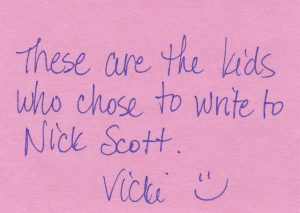 These are the kids
who chose to write to
Nick Scott.
Vicki